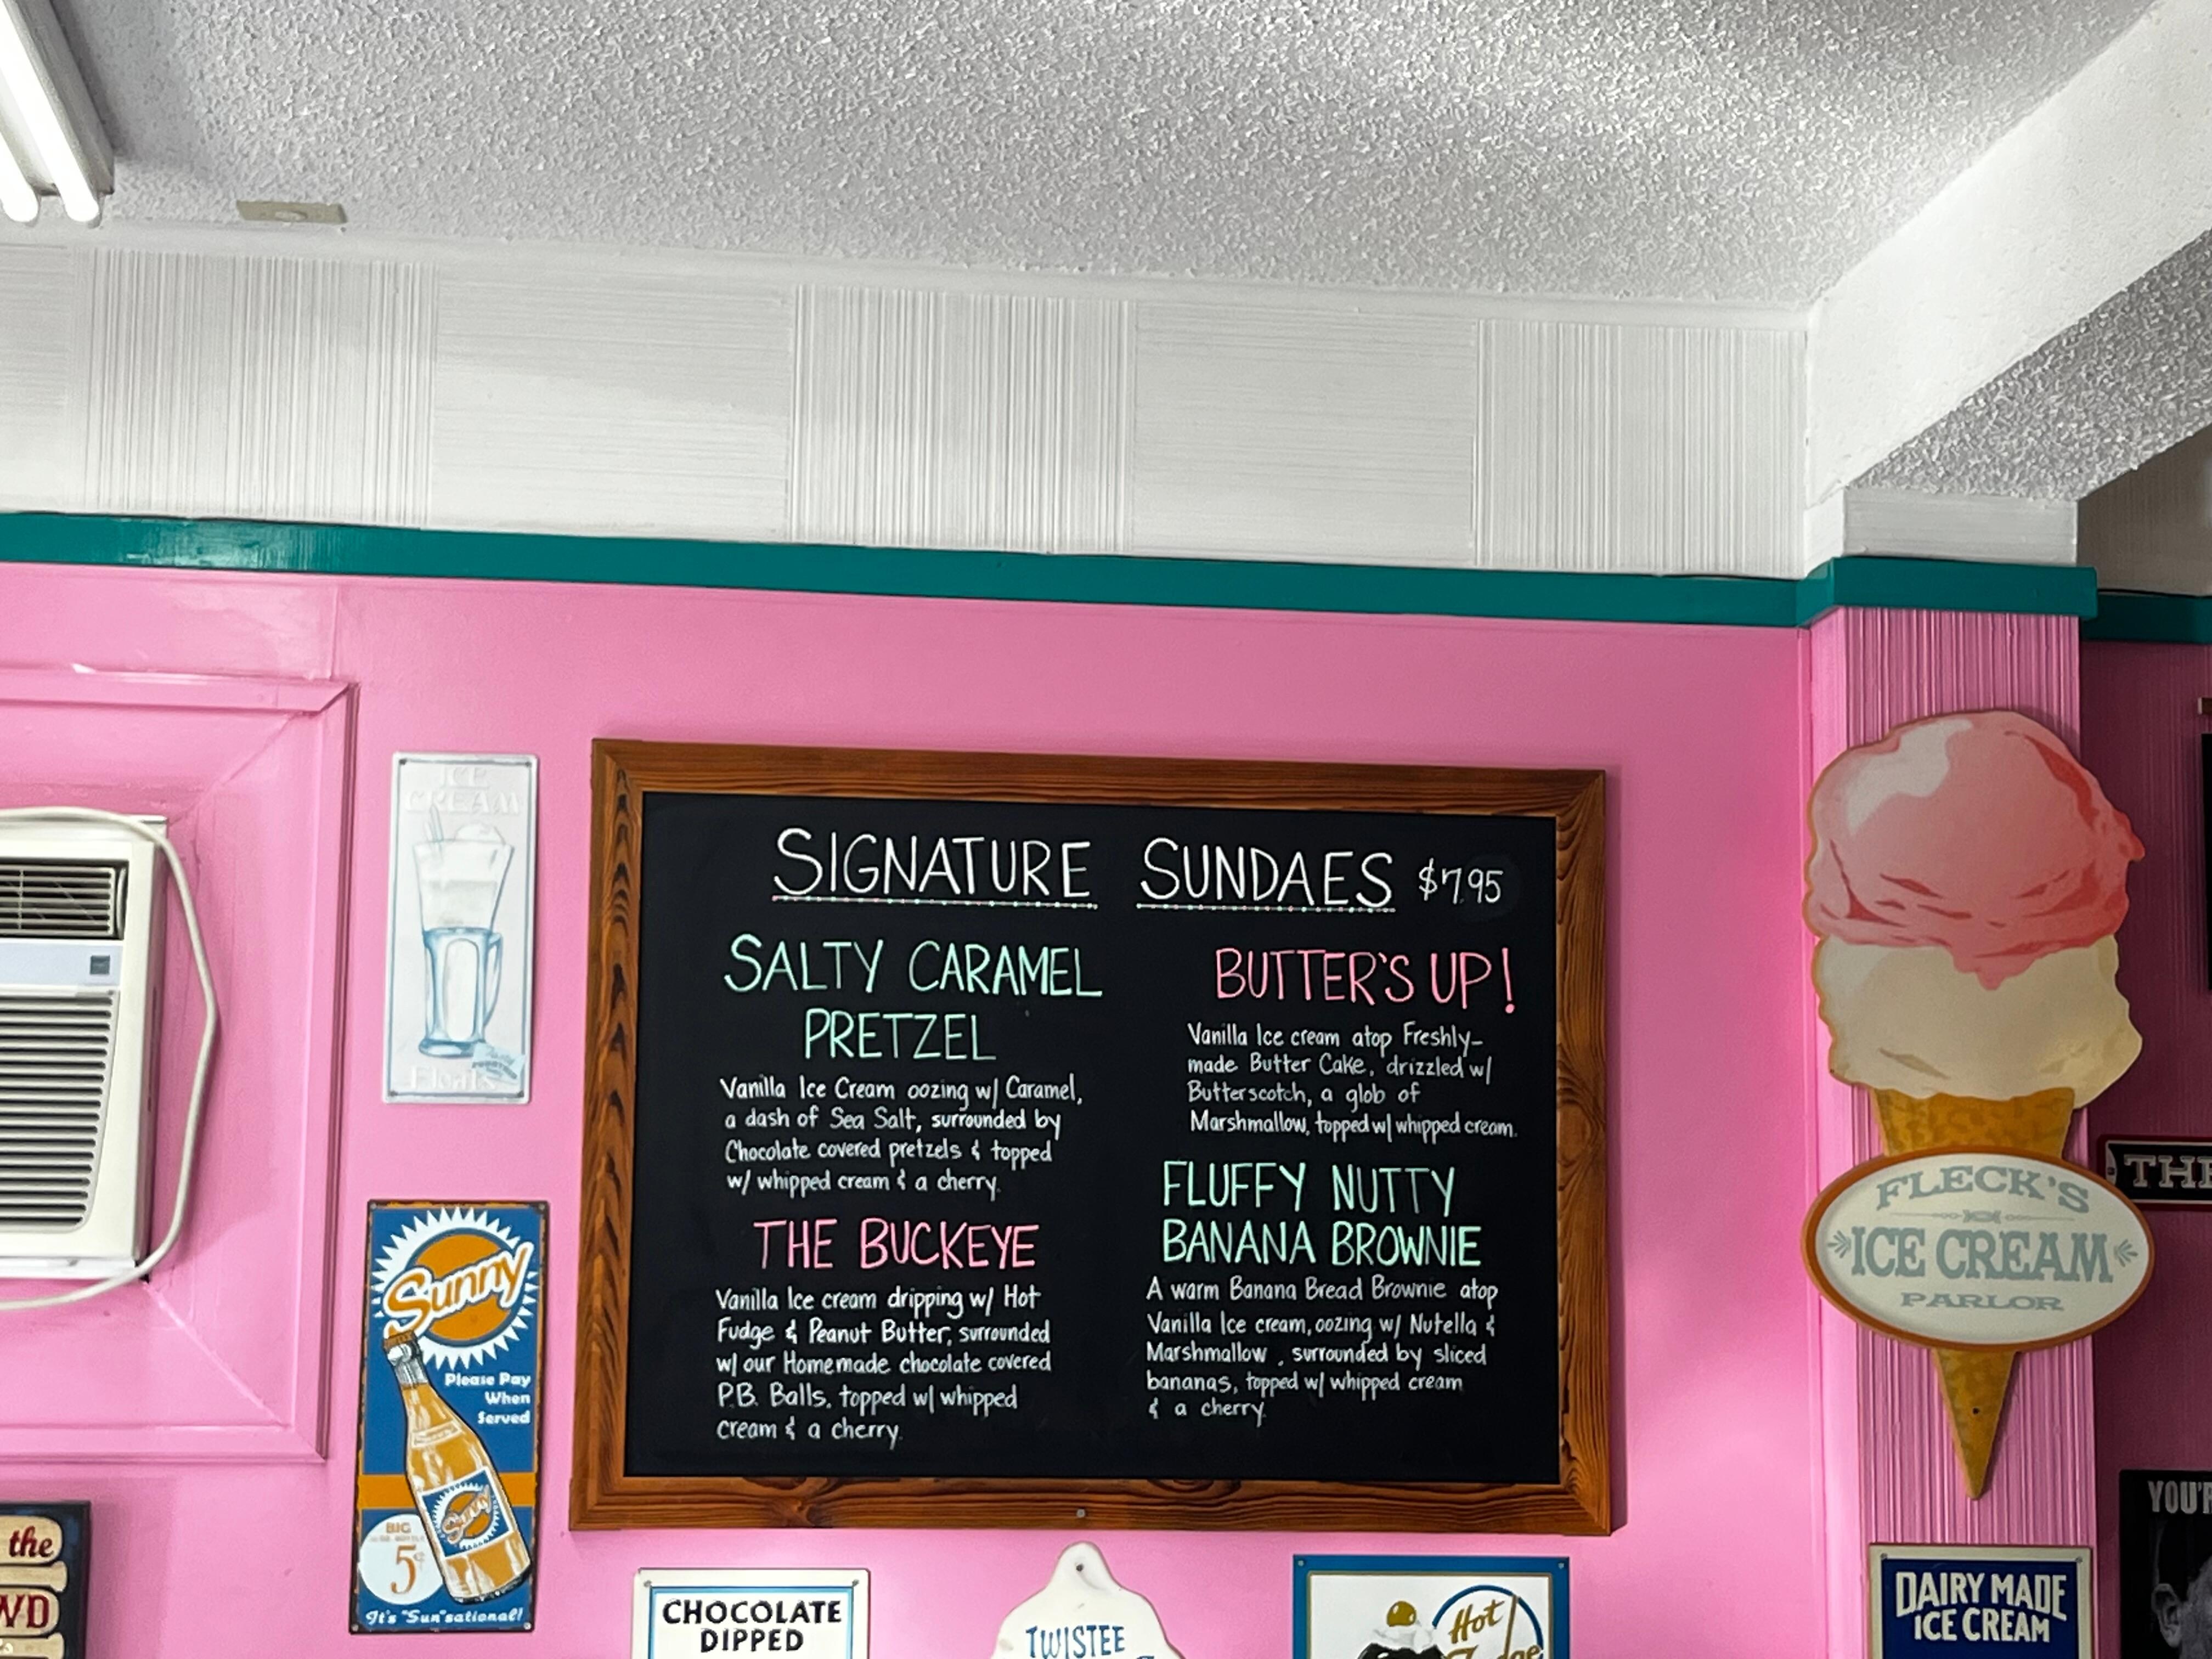 ICE
CREAM
Floats
Sunny
Please Pay
When
Served
BIG
5¢
It's "Sun"sational!
the
WD
SIGNATURE SUNDAES $7.95
SALTY CARAMEL
PRETZEL
Vanilla Ice Cream oozing w/ Caramel,
a dash of Sea Salt, surrounded by
Chocolate covered pretzels & topped
w/ whipped cream & a cherry.
THE BUCKEYE
Vanilla Ice cream dripping w/ Hot
Fudge & Peanut Butter, surrounded
w/ our Homemade chocolate covered
P.B. Balls, topped w/ whipped
cream & a cherry.
BUTTER'S UP!
Vanilla Ice cream atop Freshly-
made Butter Cake, drizzled w/
Butterscotch, a glob of
Marshmallow, topped w/ whipped cream.
FLUFFY NUTTY
BANANA BROWNIE
A warm Banana Bread Brownie atop
Vanilla Ice cream, oozing w/ Nutella &
Marshmallow, surrounded by sliced
bananas, topped w/ whipped cream
& a cherry.
CHOCOLATE
DIPPED
TWISTEE
Hot
Fudge
FLECK'S
ICE CREAM
PARLOR
THE
YOU'R
DAIRY MADE
ICE CREAM